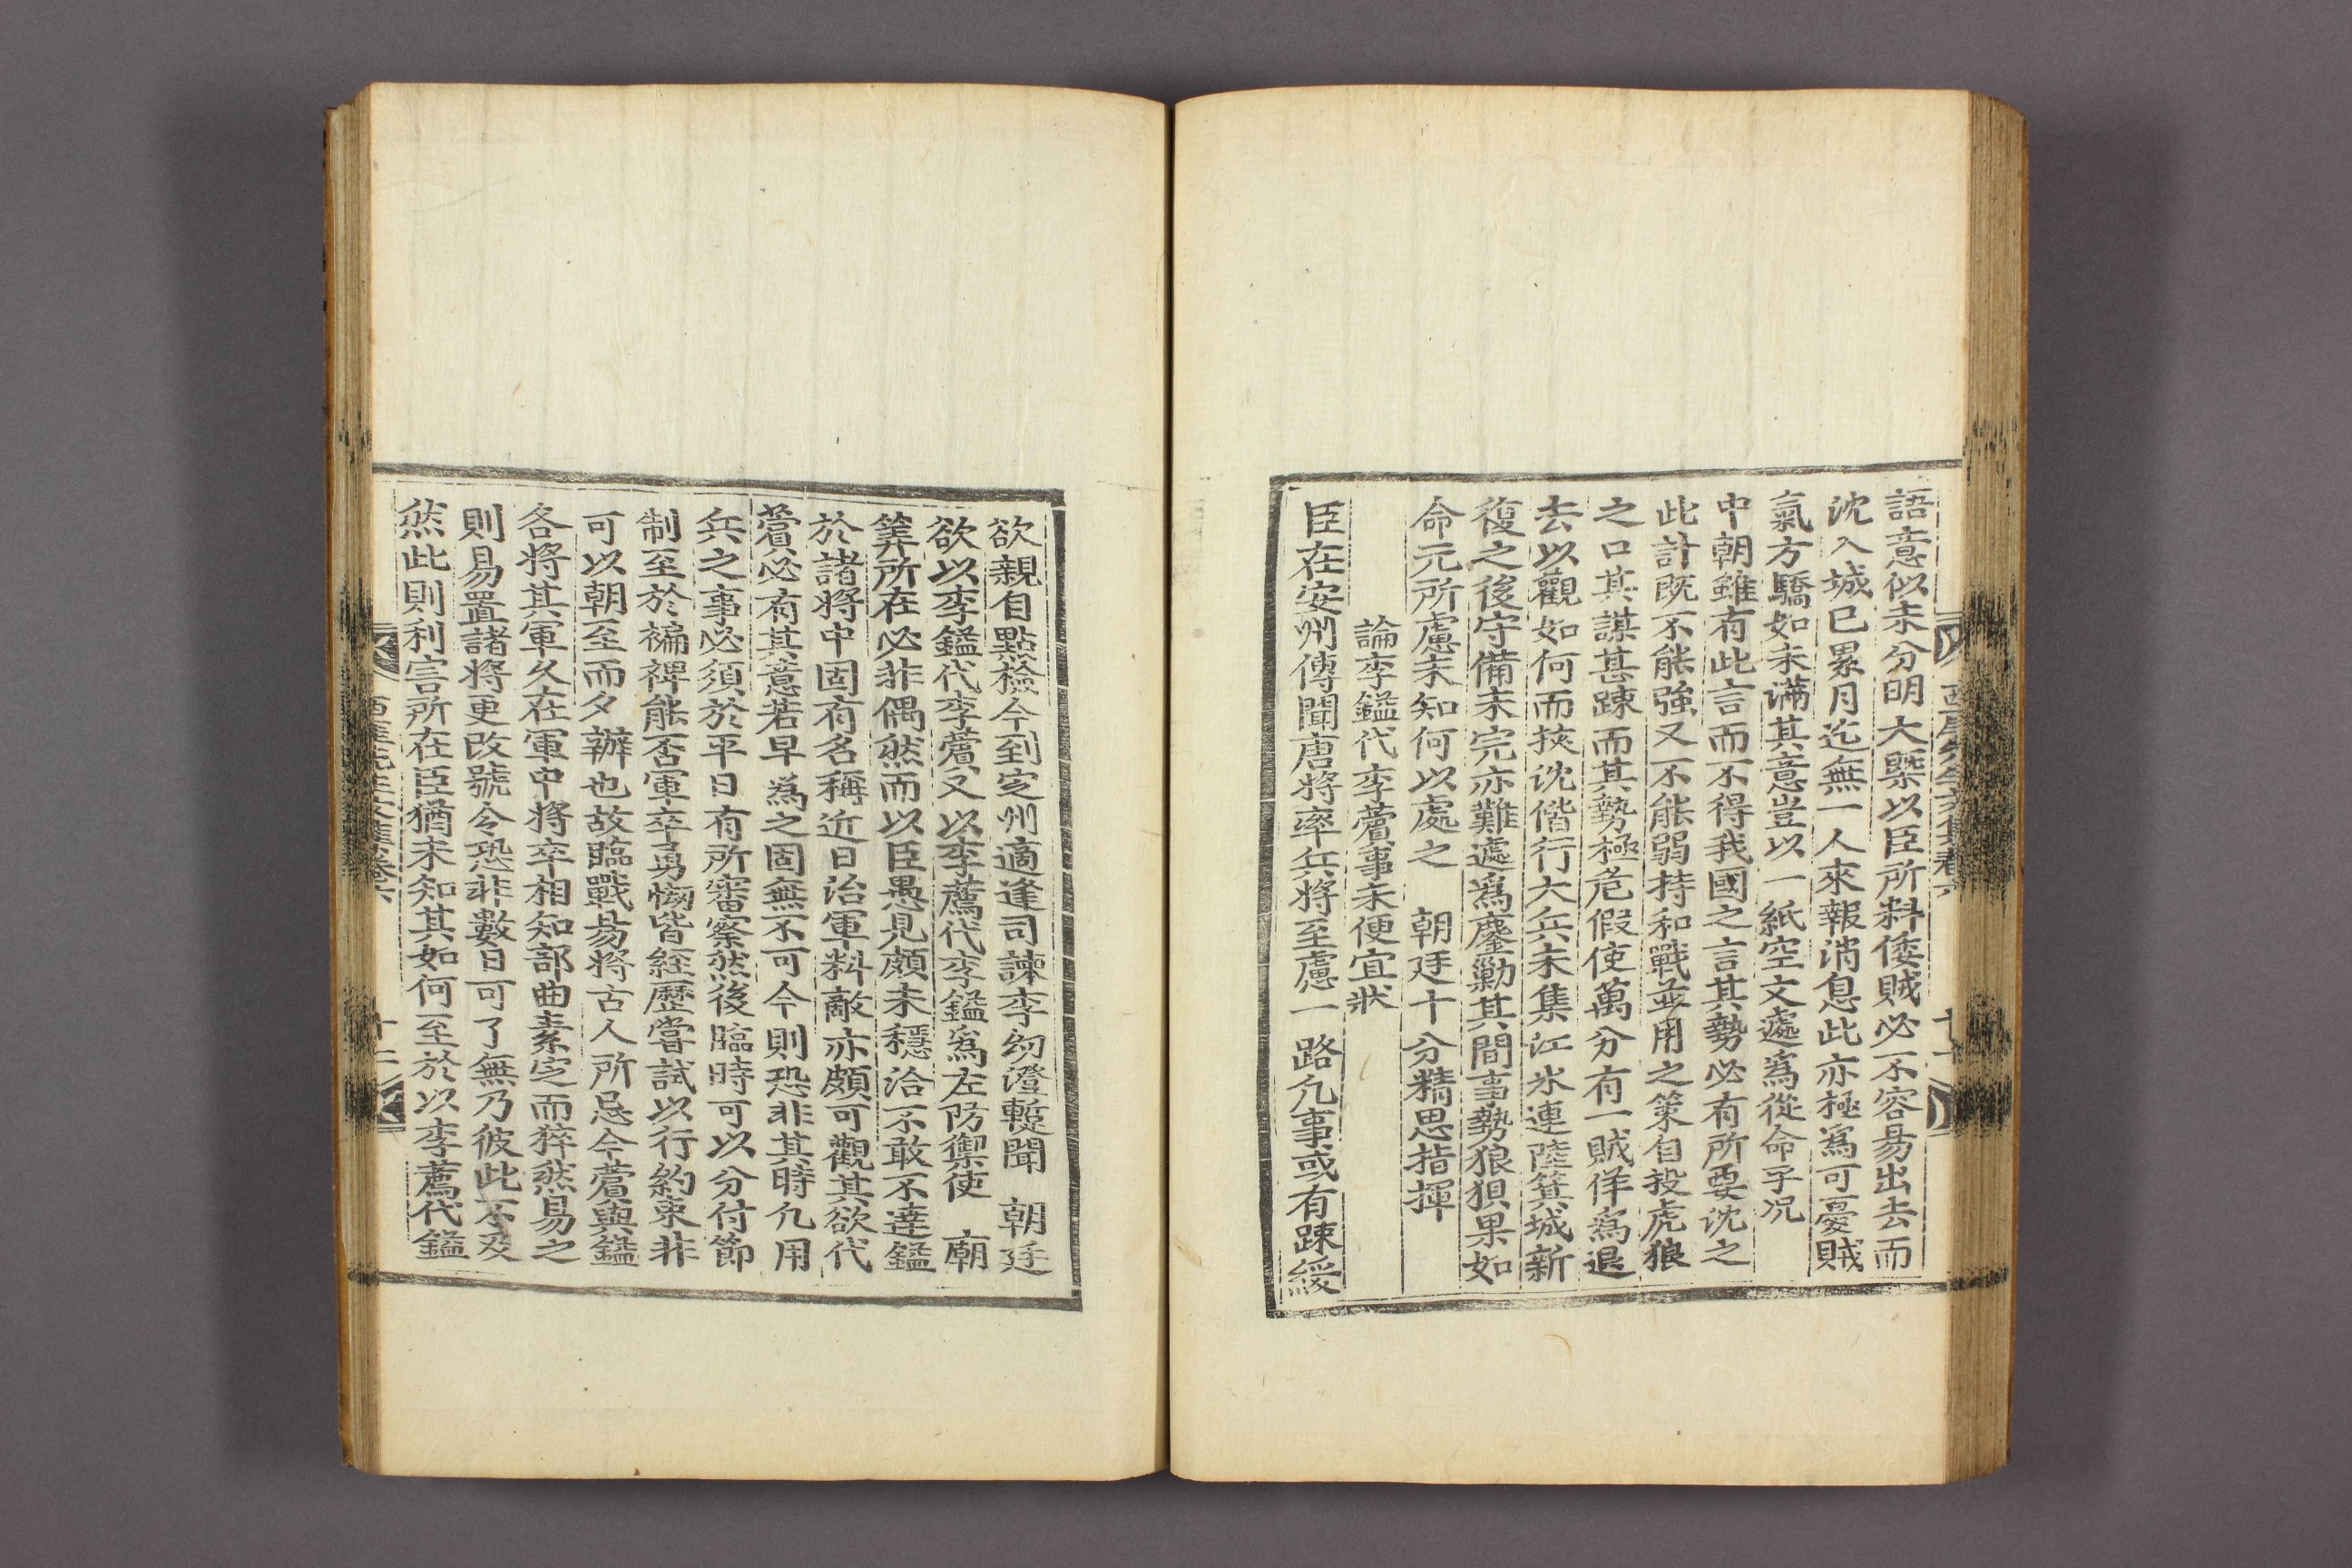 語意似未分明大槩以臣所料倭賊必不容易出去而
沈入城已累月迄無一人來報消息此亦極爲可憂賊
氣方驕如未滿其意豈以一紙空文處爲從命乎况
中朝雖有此言而不得我國之言其勢必有所要沈之
此計旣不能強又不能弱持和戰並用之策自投虎狼
之口其謀甚踈而其勢極危假使萬分有一賊佯爲退
去以觀如何而挾沈偕行大兵未集江氷連陸箕城新
復之後守備未完亦難遽爲鏖勦其間事勢狼狽果如
命元所慮未知何以處之 朝廷十分精思指揮
論李鎰代李薲事未便宜狀
臣在安州傳聞唐將率兵將至慮一路凡事或有踈緩
欲親自點檢今到定州適逢司諫李幼澄蹔聞 朝廷
欲以李鎰代李薲又以李薦代李鎰爲左防禦使 廟
筭所在必非偶然而以臣愚見頗未穩洽不敢不達鎰
於諸將中固有名稱近日治軍料敵亦頗可觀其欲代
薲必有其意若早爲之固無不可今則恐非其時凡用
兵之事必須於平日有所審察然後臨時可以分付節
制至於褊裨能否軍卒勇㤥皆經歷嘗試以行約束非
可以朝至而夕辦也故臨戰易將古人所忌今薲與鎰
各將其軍久在軍中將卒相知部曲素定而猝然易之
則易置諸將更改號令恐非數日可了無乃彼此不及
然此則利害所在臣猶未知其如何至於以李薦代鎰
西厓先生文集卷六 十二